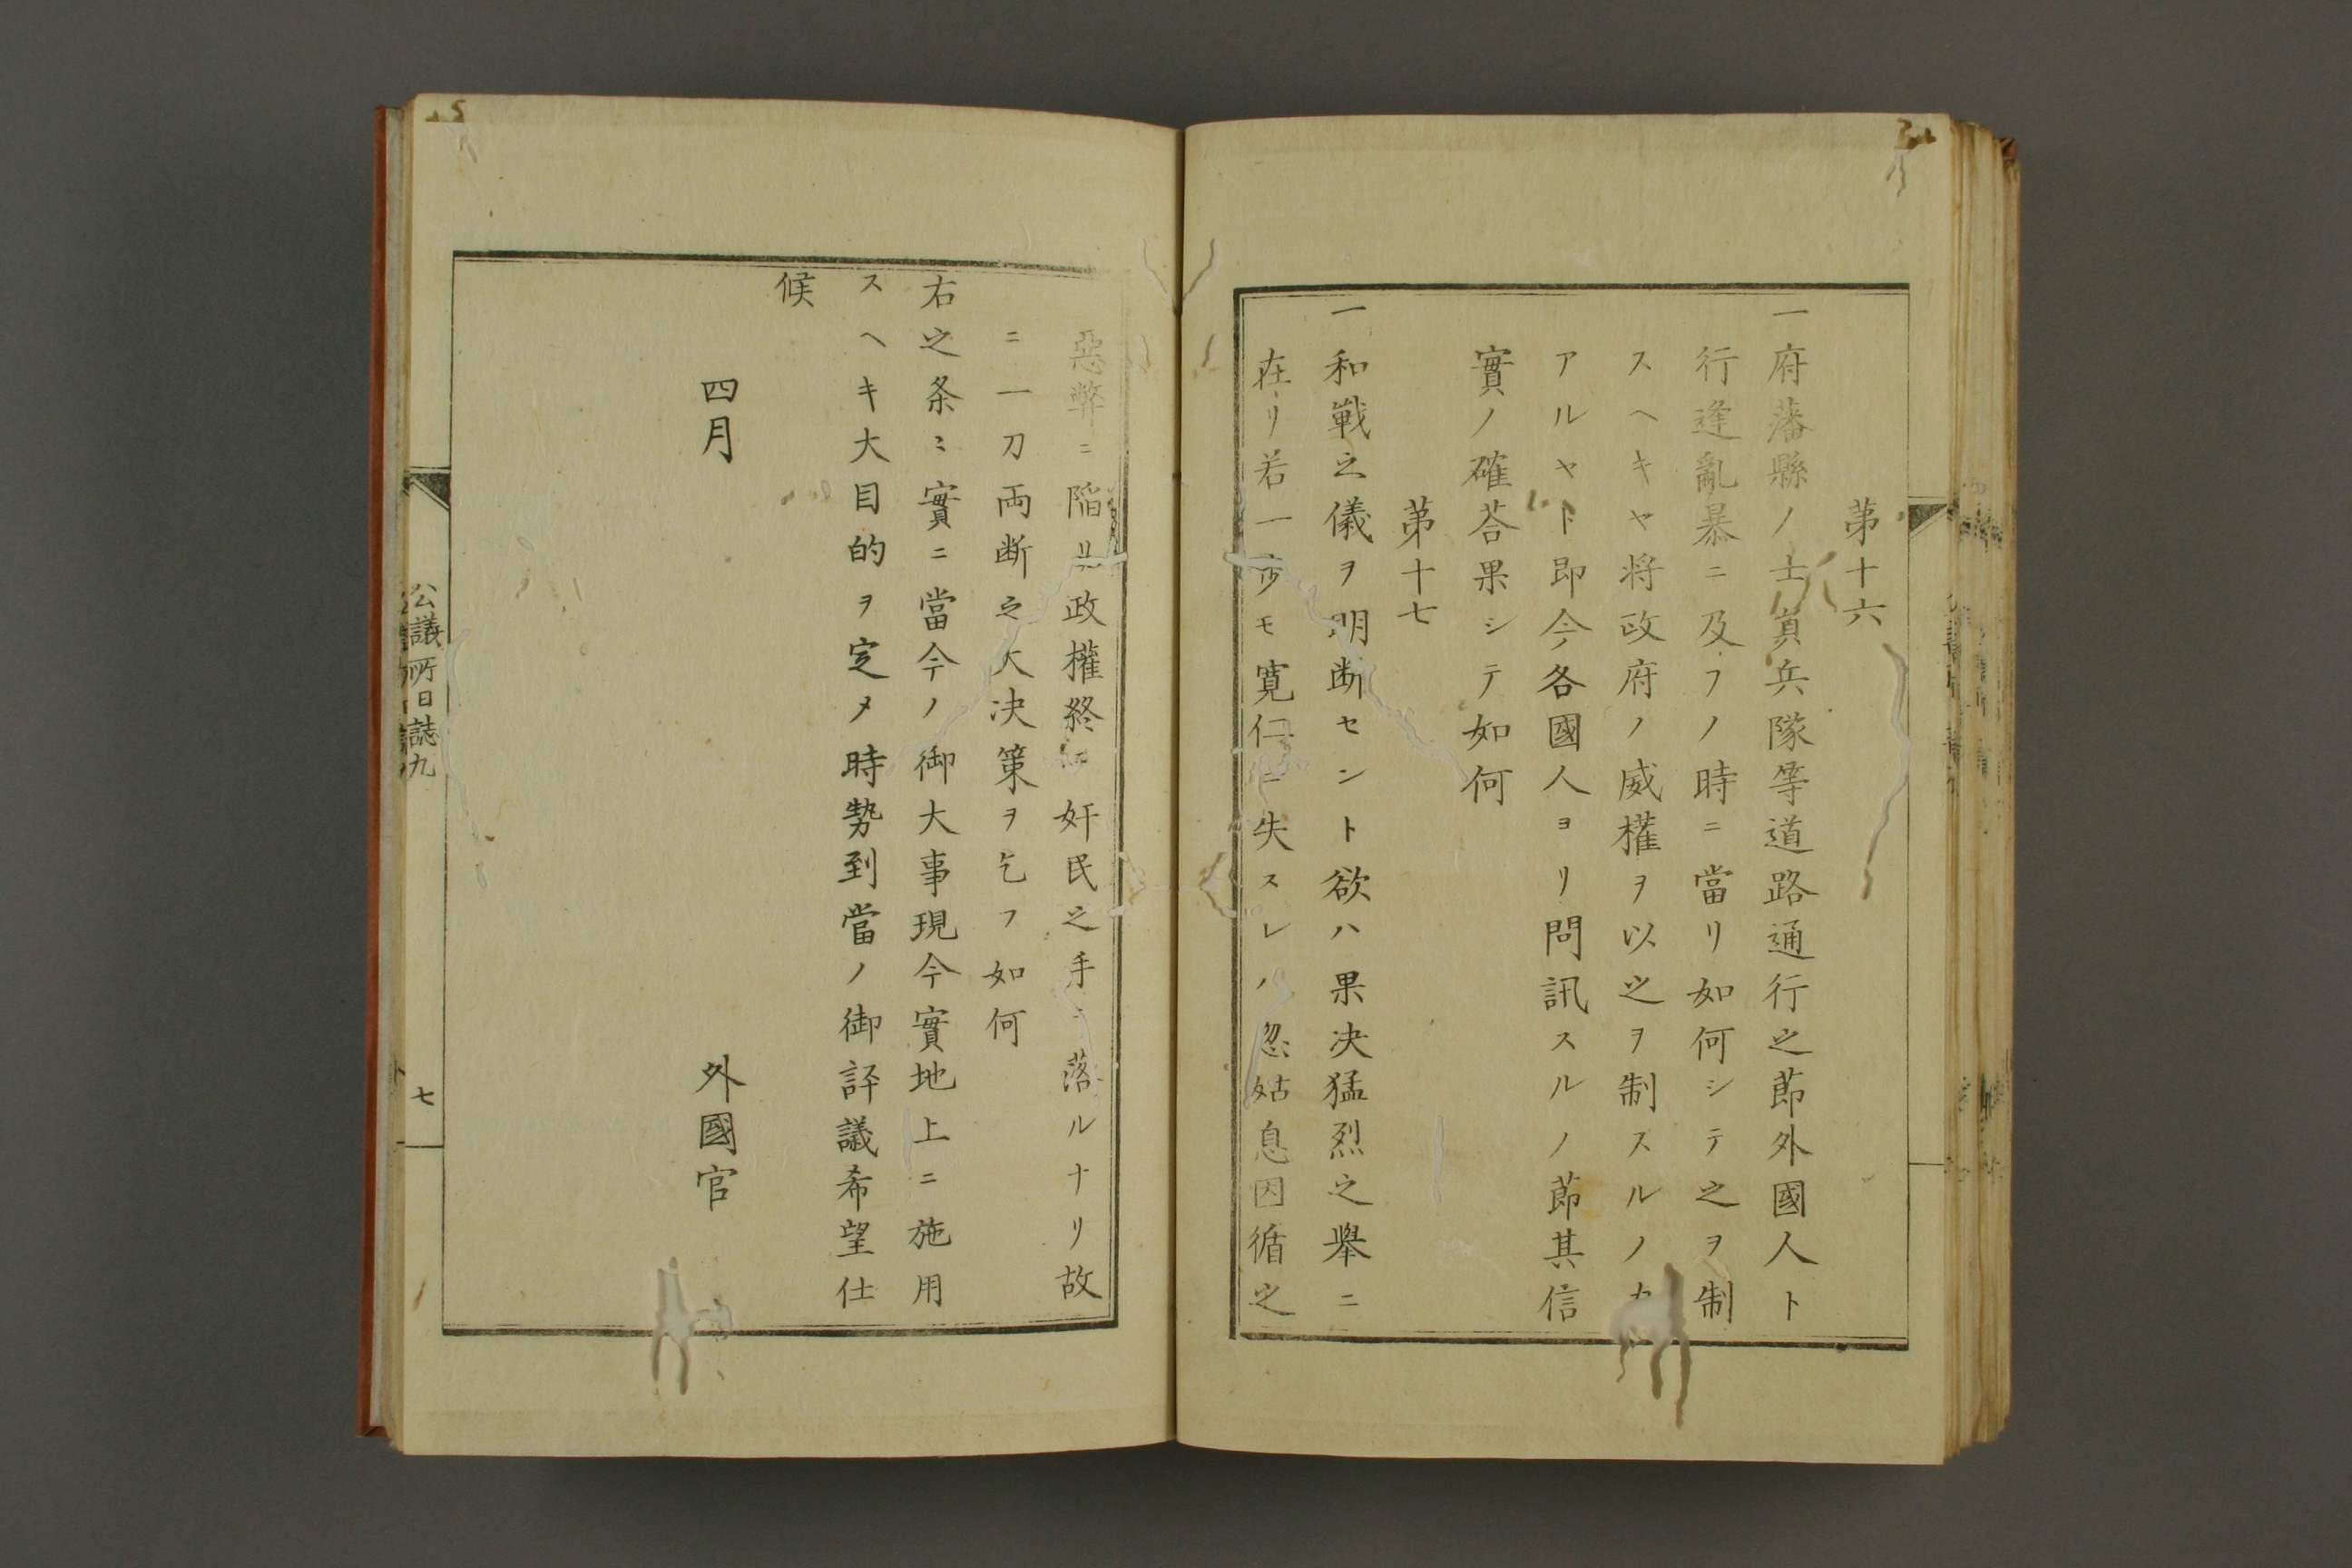 第十六
一府藩縣ノ士員兵隊等道路通行之節外國人ト
行逢亂暴ニ及フノ時ニ當リ如何シテ之ヲ制
スヘキヤ将政府ノ威權ヲ以之ヲ制スルノカ
アルヤト即今各國人ヨリ問訊スルノ節其信
實ノ確荅果シテ如何
第十七
一和戦之儀ヲ明断セント欲ハ果决猛烈之擧ニ
在リ若一歩モ寛仁ニ失スレハ忽姑息因循之
惡弊ニ陥リ政權終ニ奸民之手ニ落ルナリ故
ニ一刀両断之大决策ヲ乞フ如何
右之条〻實ニ當今ノ御大事現今實地上ニ施用
スヘキ大目的ヲ定メ時勢到當ノ御評議希望仕
候
四月
外國官
公議所日誌九
七